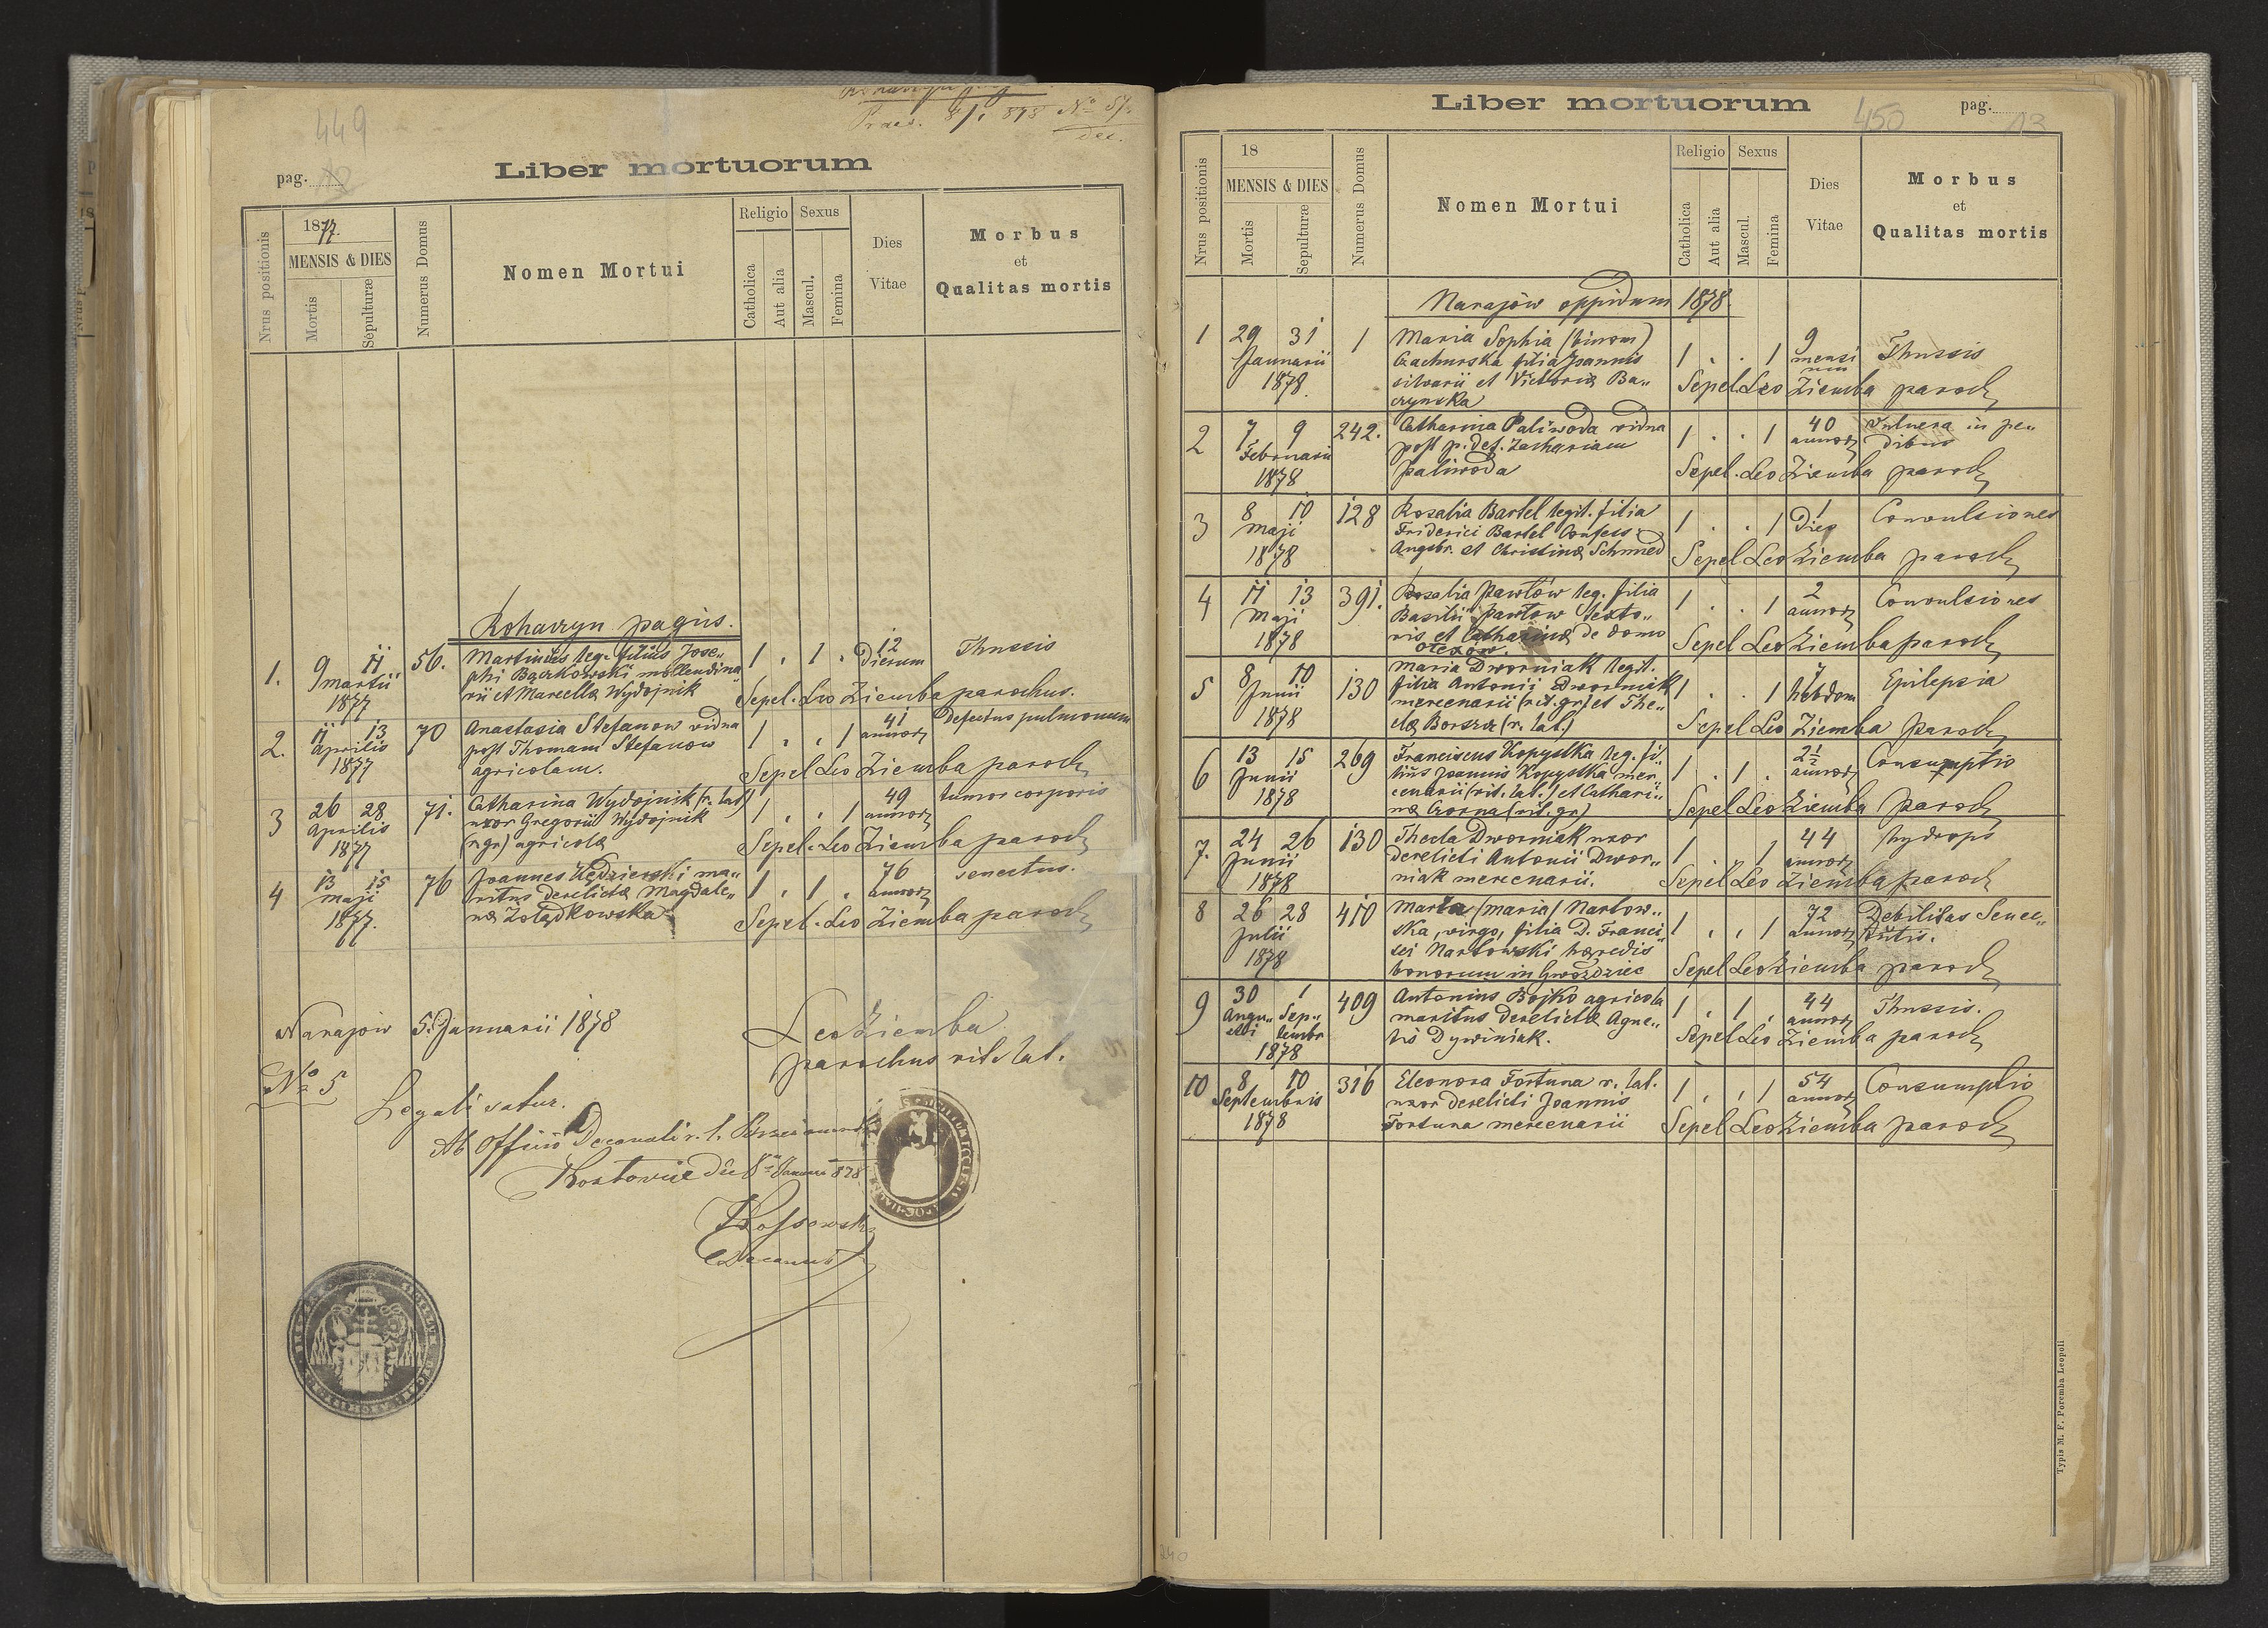 449
Praes. 8/1 878 No 57.
dec.
pag. 12
Liber mortuorum
Nrus positionis
1877.
MENSIS & DIES
Mortis
Sepulturæ
Numerus Domus
Nomen Mortui
Religio
Catholica
Aut alia
Sexus
Mascul.
Femina
Dies
Vitae
Morbus
et
Qualitas mortis
Rohaczyn pagus.
1. 9 11 56. Martinus leg. filius Jose„ 1 . 1 . 12 Thussis
Martii phi Bączkowski mollendina„ Dierum
1877 rii et Marcellæ Wydojnik Sepel. Leo Ziemba parochus.
2. 11 13 70 Anastasia Stefanow vidua 1 . . 1 41 Defectus pulmonum
Aprilis post Thomam Stefanow annor
1877 agricolam. Sepel Leo Ziemba paroch
3 26 28 71. Catharina Wydojnik (r. lat) 1 . . 1 49 tumor corporis
Aprilis uxor Gregorii Wydojnik annor
1877 (r gr) agricolæ Sepel. Leo Ziemba paroch
4 13 15 76 Joannes Kędzierski ma„ 1 . 1 . 76 senectus.
Maji ritus derelictæ Magdale„ annor
1877. næ Żołądkowska Sepel. Leo Ziemba paroch
Narajow 5. Januarii 1878
Leo Ziemba
parochus rit. lat.
No 5
Legalisatur.
Ab Officio Decanali r. l.
Decanus
Liber mortuorum
450
pag. 13
Nrus positionis
18
MENSIS & DIES
Mortis
Sepulturæ
Numerus Domus
Nomen Mortui
Religio
Catholica
Aut alia
Sexus
Mascul.
Femina
Dies
Vitae
Morbus
et
Qualitas mortis
Narajów oppidum 1878
1 29 31 1 Maria Sophia (binom) 1 . . 1 9 Thussis
Januarii Gachurska filia Joannis mensi
1878. silvarii et Victoriæ Ba„ num
czynska Sepel. Leo Ziemba paroch
2 7 9 242. Catharina Paliwoda vidua 1 . . 1 40 vulnera in pe„
Februarii post p. def. Zachariam annor dibus
1878 Paliwoda Sepel. Leo Ziemba paroch
3 8 10 128 Rozalia Bartel legit. filia 1 . . 1 1 Convulsiones
Maji Friderici Bartel Confess. Dies
1878 Angsbr. et Christinæ Schmied Sepel Leo Ziemba paroch
4 11 13 391. Rozalia Pawłów leg. filia 1 . . 1 2 Convulsiones
Maji Basilii Pawłow texto„ annor
1878 ris et Catharinæ de domo Sepel Leo Ziemba paroch
Olexow.
5 8 10 130 Maria Dworniak legit. 1 . . 1 7 Epilepsia
Junii filia Antonii Dworniak hebdom
1878 mercenarii (rit. gr) et The„
clæ Borsza (r. lat.) Sepel Leo Ziemba paroch
6 13 15 269 Franciscus Kopystka leg. fi„ 1 . 1 . 2½ Consumptio
Junii lius Joannis Kopystka mer„ annor
1878 cenarii (rit. lat.) et Cathari„
næ Czorna (rit. gr) Sepel Leo Ziemba paroch
7. 24 26 130 Thecla Dworniak uxor 1 . 1 44 hydrops
Junii derelicti Antonii Dwor„ annor
1878 niak mercenarii. Sepel Leo Ziemba paroch
8 26 28 410 Marta (Maria) Narłow„ 1 . . 1 72 Debilitas Senec„
Julii ska, virgo, filia D. Franci„ annor tutis.
1878 sci Narłowski hæredis
bonorum in Gwoździec Sepel Leo Ziemba paroch
9 30 1 409 Antonius Bojko agricola 1 . 1 . 44 Thussis.
Augu„ Sep„ maritus derelictæ Agne„ annor
sti tembr tis Dywiniak. Sepel Leo Ziemba paroch
1878
10 8 10 316 Eleonora Fortuna r. lat. 1 . . 1 54 Consumptio
Septembris uxor derelicti Joannis annor
1878 Fortuna mercenarii Sepel Leo Ziemba paroch
Typis M. F. Poremba Leopoli
240